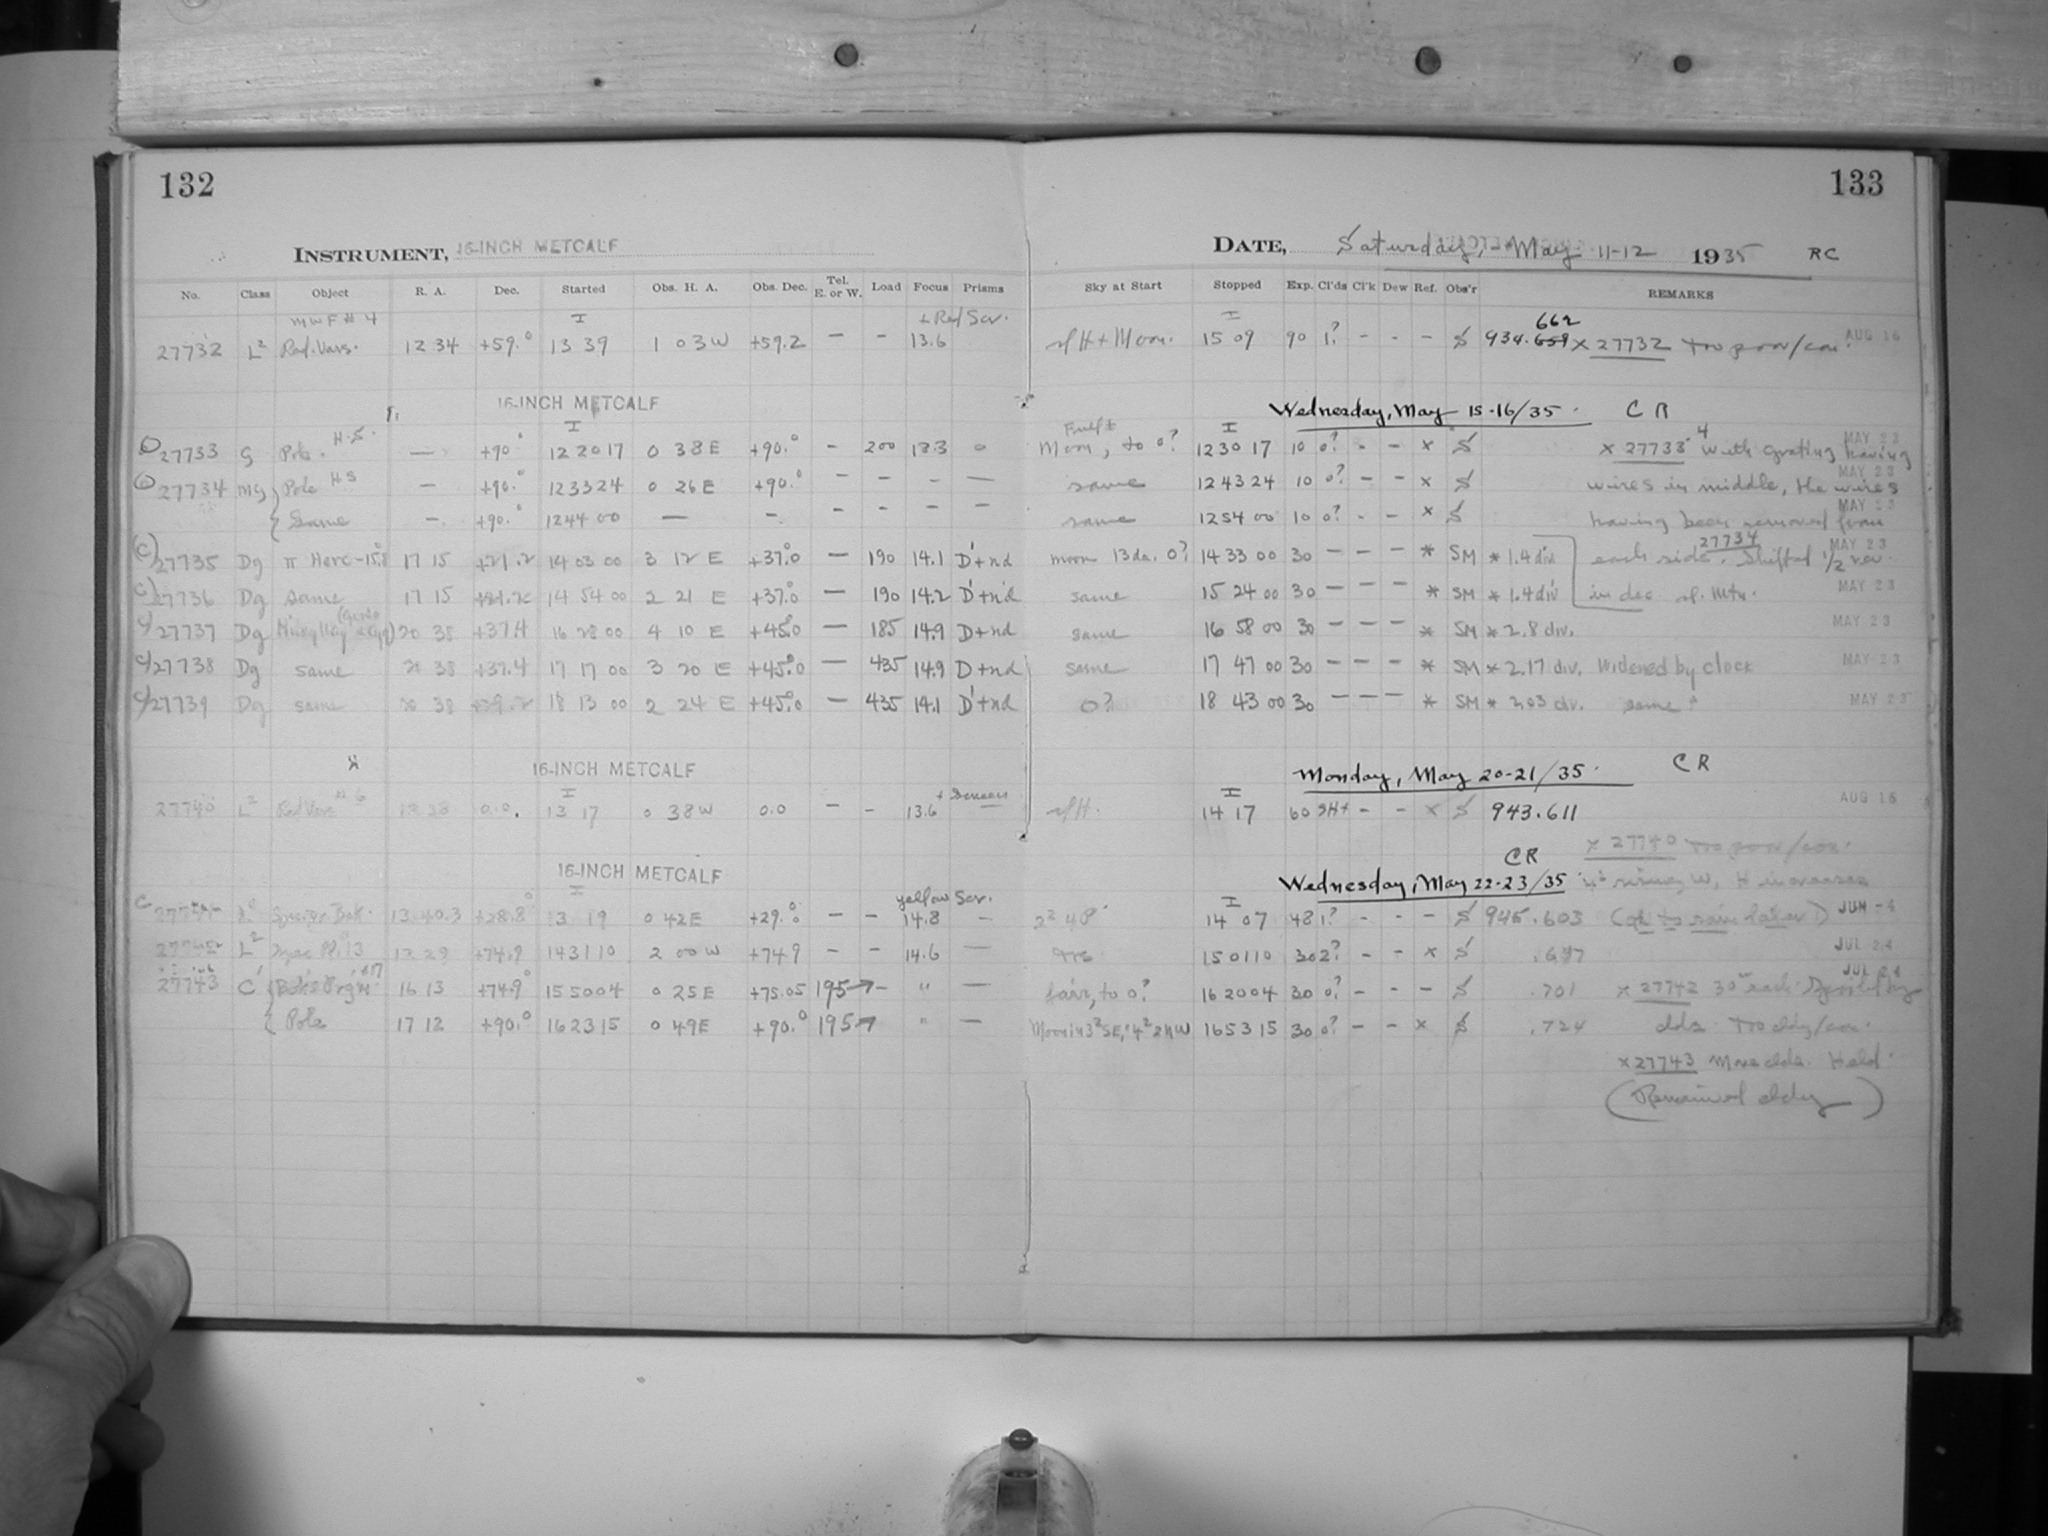 132
133
INSTRUMENT, 16-INCH METCALF
DATE, Saturday, May 11-12 1935 RC
No. Class Object R. A. Dec. Started Obs. H. A. Obs. Dec. Tel. E. or W. Load Focus Prisms Sky at Start Stopped Exp. Cl'ds Cl'k Dew Ref. Obs'r REMARKS
MWF # 4 I + Red Scr. I 662
27732 L2 Red.Vars. 12 34 +59.° 13 39 1 03W +59.2 — - 13.6 H + Moon. 15 09 90 1? - - - S 934.659 x 27732 Too poor/con. AUG 16
16-INCH METCALF Wednesday, May 15-16/35. CR
27733 G Pole. H.S. — +90° 12 20 17 0 38E +90.° - 200 13.3 0 Full Moon, to 0? 12 30 17 10 0? - - x S x 27733 4 with grating having MAY 23
27734 MG Pole HS - +90.° 12 33 24 0 26E +90.° - - - — same 12 43 24 10 0? - - x S wires in middle, the wires MAY 23
Same -. +90.° 12 44 00 — -. - - - - same 12 54 00 10 0? - - x S having been removed from MAY 23
(C) 27735 Dg π Herc-15.8 17 15 14 03 00 3 12 E +37.0 — 190 14.1 D'+nd moon 13da. 0? 14 33 00 30 - - - * SM * 1.4 div each side. 27734 Shifted 1/2 rev. MAY 23
27736 Dg same 17 15 14 54 00 2 21 E +37.0 — 190 14.2 D'+nd same 15 24 00 30 - - - * SM * 1.4 div in dec. MAY 23
27737 Dg Milky Way 20 38 +37.4 16 28 00 4 10 E +45.0 — 185 14.9 D+nd same 16 58 00 30 - - - * SM * 2.8 div. MAY 23
27738 Dg same 20 38 +37.4 17 17 00 3 20 E +45.0 — 435 14.9 D+nd same 17 47 00 30 - - - * SM * 2.17 div. Widened by clock MAY 23
27739 Dg same 20 38 18 13 00 2 24 E +45.0 — 435 14.1 D'+nd 0? 18 43 00 30 - - - * SM * 2.03 div. same MAY 23
16-INCH METCALF Monday, May 20-21/35. CR
27740 L2 Red Vars # 6 0.0. 13 17 0 38W 0.0 - - 13.6 + Screen H. 14 17 60 - - x S 943.611 AUG 16
x 27740 Too poor/con.
16-INCH METCALF Wednesday, May 22-23/35 CR
13 40.3 +28.8° 13 19 0 42E +29.° - - yellow Scr. 14.8 - 14 07 48 1? - - - S 945.603 JUN -4
L2 +74.9 14 31 10 2 00W +74.9 - - 14.6 — 15 01 10 30 2? - - x S JUL 24
27743 C' 16 13 +74.9 15 50 04 0 25E +75.05 195 - " — fair, to 0? 16 20 04 30 0? - - - S .701 x 27742 30m each. JUL 24
Pole 17 12 +90.° 16 23 15 0 49E +90.° 195 " — Moon in 3 16 53 15 30 0? - - x S .724 clds. Too cldy/con.
x 27743 More clds. Held.
(Remained cldy)